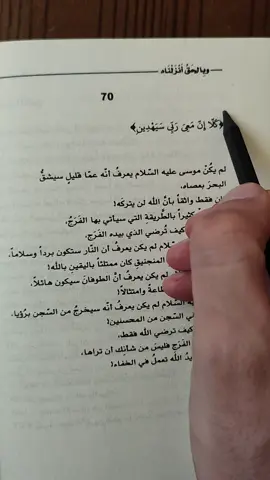 وبالحق أنزلناه
70
﴿كَلَّا إِنَّ مَعِيَ رَبِّي سَيَهْدِينِ﴾
لم يكُنْ موسى عليه السّلام يعرفُ أنّه عمّا قليلٍ سيشقُّ
البحرَ بعصاه.
فقط واثقاً بأنَّ الله لن يتركَه!
كثيراً بالطّريقة التي سيأتي بها الفَرَجُ،
كيف تُرضي الذي بيده الفَرَج.
لم يكن يعرفُ أن النّار ستكون برداً وسلاماً،
المنجنيقِ كان ممتلئاً باليقينِ بالله!
لم يكن يعرفُ أنَّ الطوفانَ سيكون هائلاً،
طاعةً وامتثالاً!
السّلام لم يكن يعرفُ أنّه سيخرجُ من السّجن برُؤيا،
السّجن من المحسنين!
كيف ترضي الله فقط،
الفَرَج فليسَ من شأنِكَ أن تراها،
الله تعملُ في الخفاء!